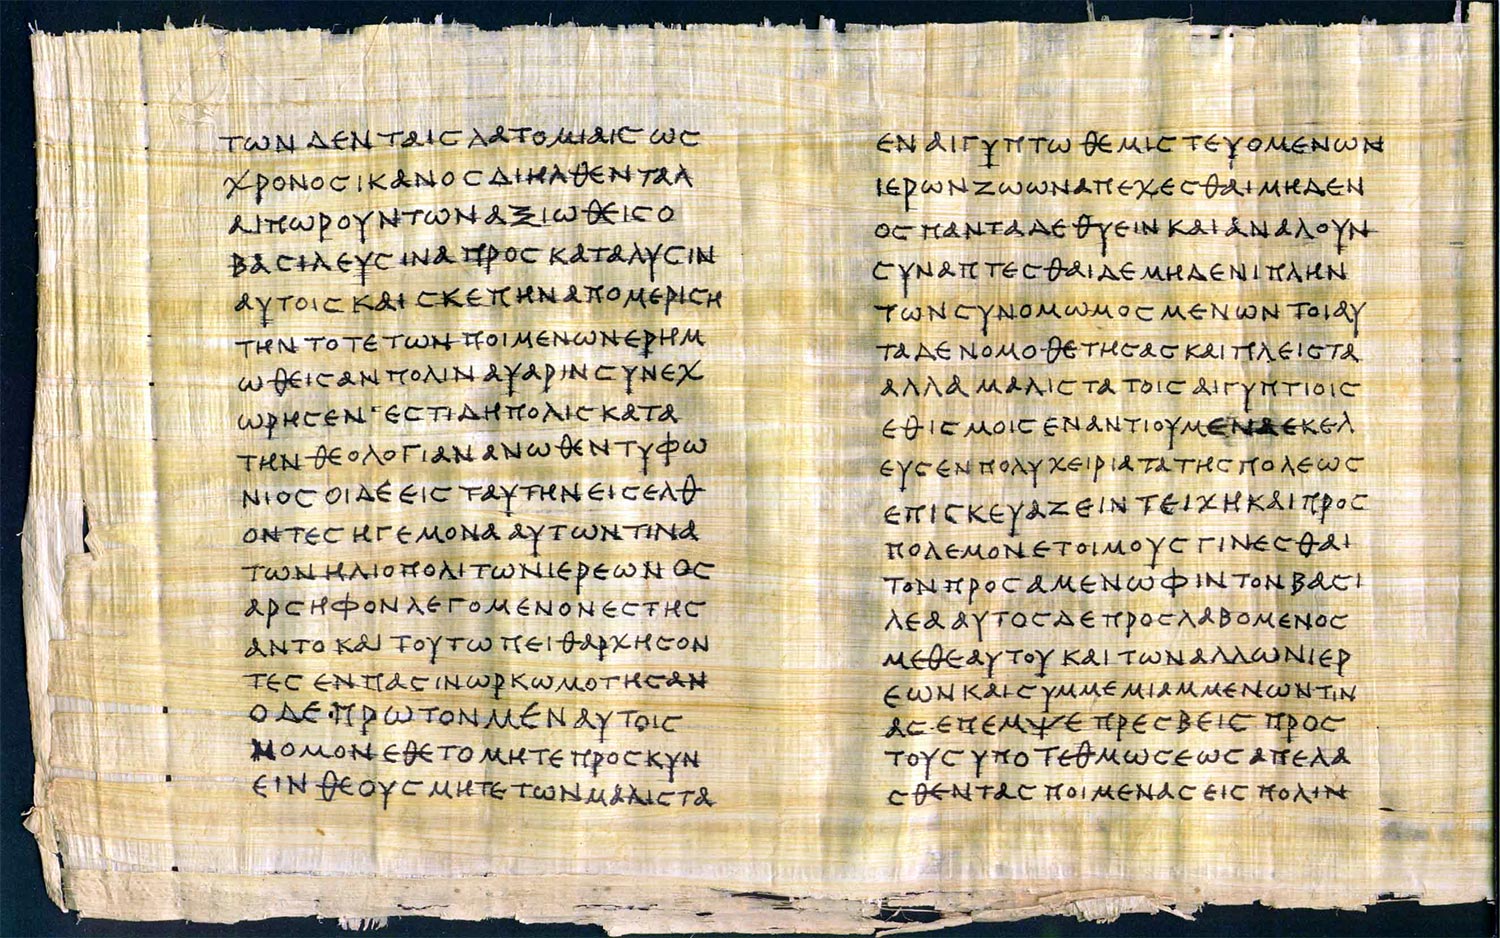 ΤΩΝ ΔΕΝ ΤΑΙϹ ΛΑΤΟΜΙΑΙϹ ΩϹ
ΧΡΟΝΟϹ ΙΚΑΝΟϹ ΔΙΗΛΘΕΝ ΤΑΛ
ΑΙΠΩΡΟΥΝΤΩΝ ΑΞΙΩΘΕΙϹ Ο
ΒΑϹΙΛΕΥϹ ΙΝΑ ΠΡΟϹ ΚΑΤΑΛΥϹΙΝ
ΑΥΤΟΙϹ ΚΑΙ ϹΚΕΠΗΝ ΑΠΟΜΕΡΙϹΗ
ΤΗΝ ΤΟΤΕ ΤΩΝ ΠΟΙΜΕΝΩΝ ΕΡΗΜ
ΩΘΕΙϹΑΝ ΠΟΛΙΝ ΑΥΑΡΙΝ ϹΥΝΕΧ
ΩΡΗϹΕΝ· ΕϹΤΙ ΔΗ ΠΟΛΙϹ ΚΑΤΑ
ΤΗΝ ΘΕΟΛΟΓΙΑΝ ΑΝΩΘΕΝ ΤΥΦΩ
ΝΙΟϹ ΟΙ ΔΕ ΕΙϹ ΤΑΥΤΗΝ ΕΙϹΕΛΘ
ΟΝΤΕϹ ΗΓΕΜΟΝΑ ΑΥΤΩΝ ΤΙΝΑ
ΤΩΝ ΗΛΙΟΠΟΛΙΤΩΝ ΙΕΡΕΩΝ ΟϹ
ΑΡϹΗΦΟΝ ΛΕΓΟΜΕΝΟΝ ΕϹΤΗϹ
ΑΝΤΟ ΚΑΙ ΤΟΥΤΩ ΠΕΙΘΑΡΧΗϹΟΝ
ΤΕϹ ΕΝ ΠΑϹΙΝ ΩΡΚΩΜΟΤΗϹΑΝ
Ο ΔΕ ΠΡΩΤΟΝ ΜΕΝ ΑΥΤΟΙϹ
ΝΟΜΟΝ ΕΘΕΤΟ ΜΗΤΕ ΠΡΟϹΚΥΝ
ΕΙΝ ΘΕΟΥϹ ΜΗΤΕ ΤΩΝ ΜΑΛΙϹΤΑ
ΕΝ ΑΙΓΥΠΤΩ ΘΕΜΙϹΤΕΥΟΜΕΝΩΝ
ΙΕΡΩΝ ΖΩΩΝ ΑΠΕΧΕϹΘΑΙ ΜΗΔΕΝ
ΟϹ ΠΑΝΤΑ ΔΕ ΘΥΕΙΝ ΚΑΙ ΑΝΑΛΟΥΝ
ϹΥΝΑΠΤΕϹΘΑΙ ΔΕ ΜΗΔΕΝΙ ΠΛΗΝ
ΤΩΝ ϹΥΝΟΜΩΜΟϹΜΕΝΩΝ ΤΟΙΑΥ
ΤΑ ΔΕ ΝΟΜΟΘΕΤΗϹΑϹ ΚΑΙ ΠΛΕΙϹΤΑ
ΑΛΛΑ ΜΑΛΙϹΤΑ ΤΟΙϹ ΑΙΓΥΠΤΙΟΙϹ
ΕΘΙϹΜΟΙϹ ΕΝΑΝΤΙΟΥΜΕΝΑ ΕΚΕΛ
ΕΥϹΕΝ ΠΟΛΥΧΕΙΡΙΑ ΤΑ ΤΗϹ ΠΟΛΕΩϹ
ΕΠΙϹΚΕΥΑΖΕΙΝ ΤΕΙΧΗ ΚΑΙ ΠΡΟϹ
ΠΟΛΕΜΟΝ ΕΤΟΙΜΟΥϹ ΓΙΝΕϹΘΑΙ
ΤΟΝ ΠΡΟϹ ΑΜΕΝΩΦΙΝ ΤΟΝ ΒΑϹΙ
ΛΕΑ ΑΥΤΟϹ ΔΕ ΠΡΟϹΛΑΒΟΜΕΝΟϹ
ΜΕΘΕΑΥΤΟΥ ΚΑΙ ΤΩΝ ΑΛΛΩΝ ΙΕΡ
ΕΩΝ ΚΑΙ ϹΥΜΜΕΜΙΑΜΜΕΝΩΝ ΤΙΝ
ΑϹ ΕΠΕΜΨΕ ΠΡΕϹΒΕΙϹ ΠΡΟϹ
ΤΟΥϹ ΥΠΟ ΤΕΘΜΩϹΕΩϹ ΑΠΕΛΑ
ϹΘΕΝΤΑϹ ΠΟΙΜΕΝΑϹ ΕΙϹ ΠΟΛΙΝ